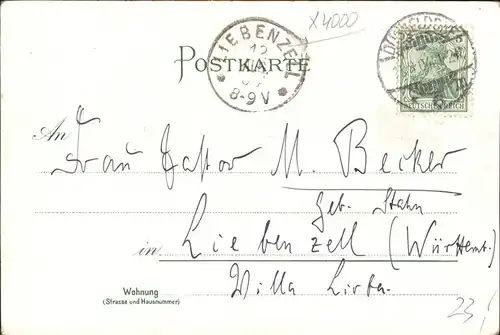 X4000
LIEBENZELL
12
8-9V
POSTKARTE
DEUTSCHES REICH
An
Frau Pastor M. Becker
geb. Stahn
in Liebenzell (Württemb.)
Villa Lirba.
Wohnung
(Strasse und Hausnummer)
23,